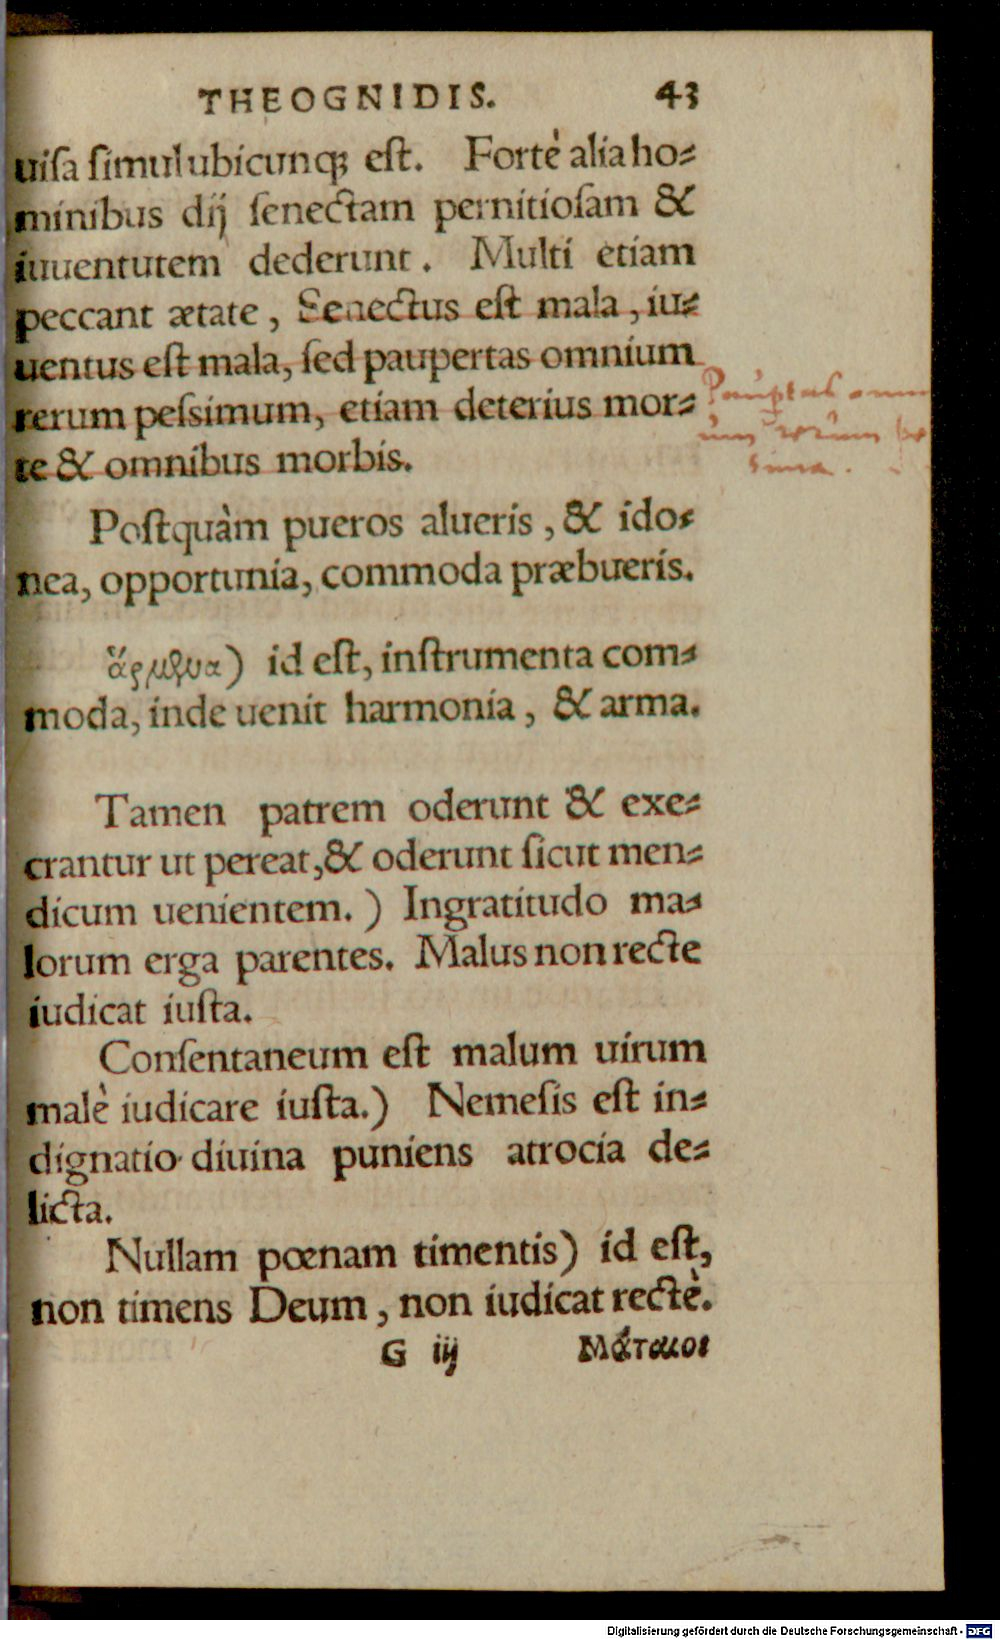 THEOGNIDIS. 43
uiſa ſimul ubicunq; eſt. Fortè alia ho⸗
minibus dij ſenectam pernitioſam &
iuuentutem dederunt. Multi etiam
peccant ætate, Senectus eſt mala, iu⸗
uentus eſt mala, ſed paupertas omnium
rerum peſsimum, etiam deterius mor⸗
te & omnibus morbis.
Paup̱tas omni
um rerum peſ
sima.
Poſtquàm pueros alueris, & ido⸗
nea, opportunia, commoda præbueris.
id eſt, inſtrumenta com⸗
moda, inde uenit harmonia, & arma.
Tamen patrem oderunt & exe⸗
crantur ut pereat, & oderunt ſicut men⸗
dicum uenientem.) Ingratitudo ma⸗
lorum erga parentes. Malus non recte
iudicat iuſta.
Conſentaneum eſt malum uirum
malè iudicare iuſta.) Nemeſis eſt in⸗
dignatio diuina puniens atrocia de⸗
licta.
Nullam pœnam timentis) id eſt,
non timens Deum, non iudicat rectè.
G iij Μάταιοι
Digitalisierung gefördert durch die Deutsche Forschungsgemeinschaft - DFG